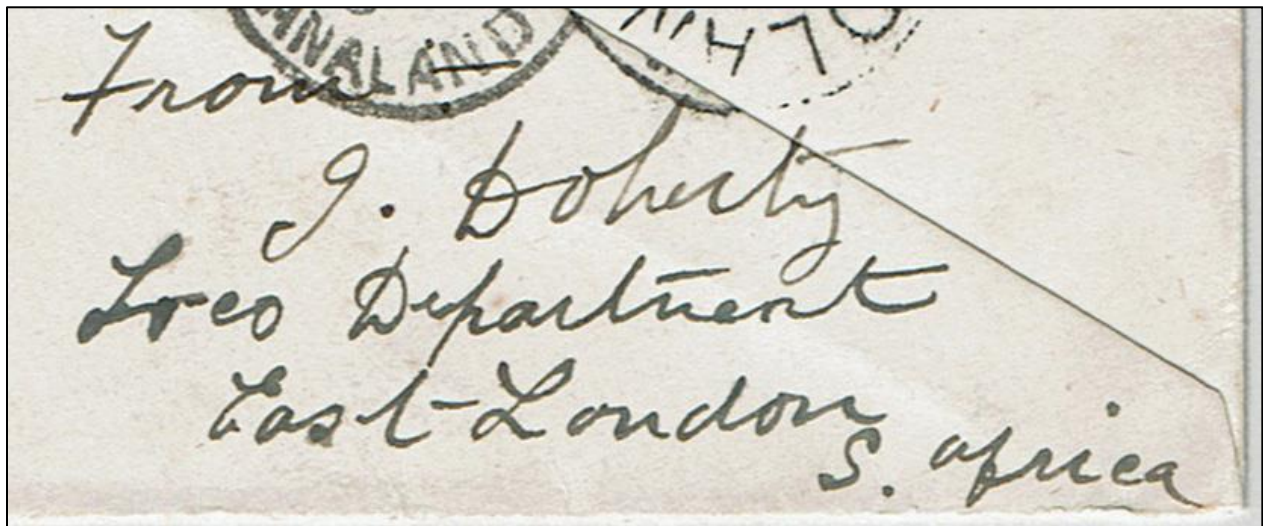 From
J. Doherty
Loco Department
East London
S. Africa